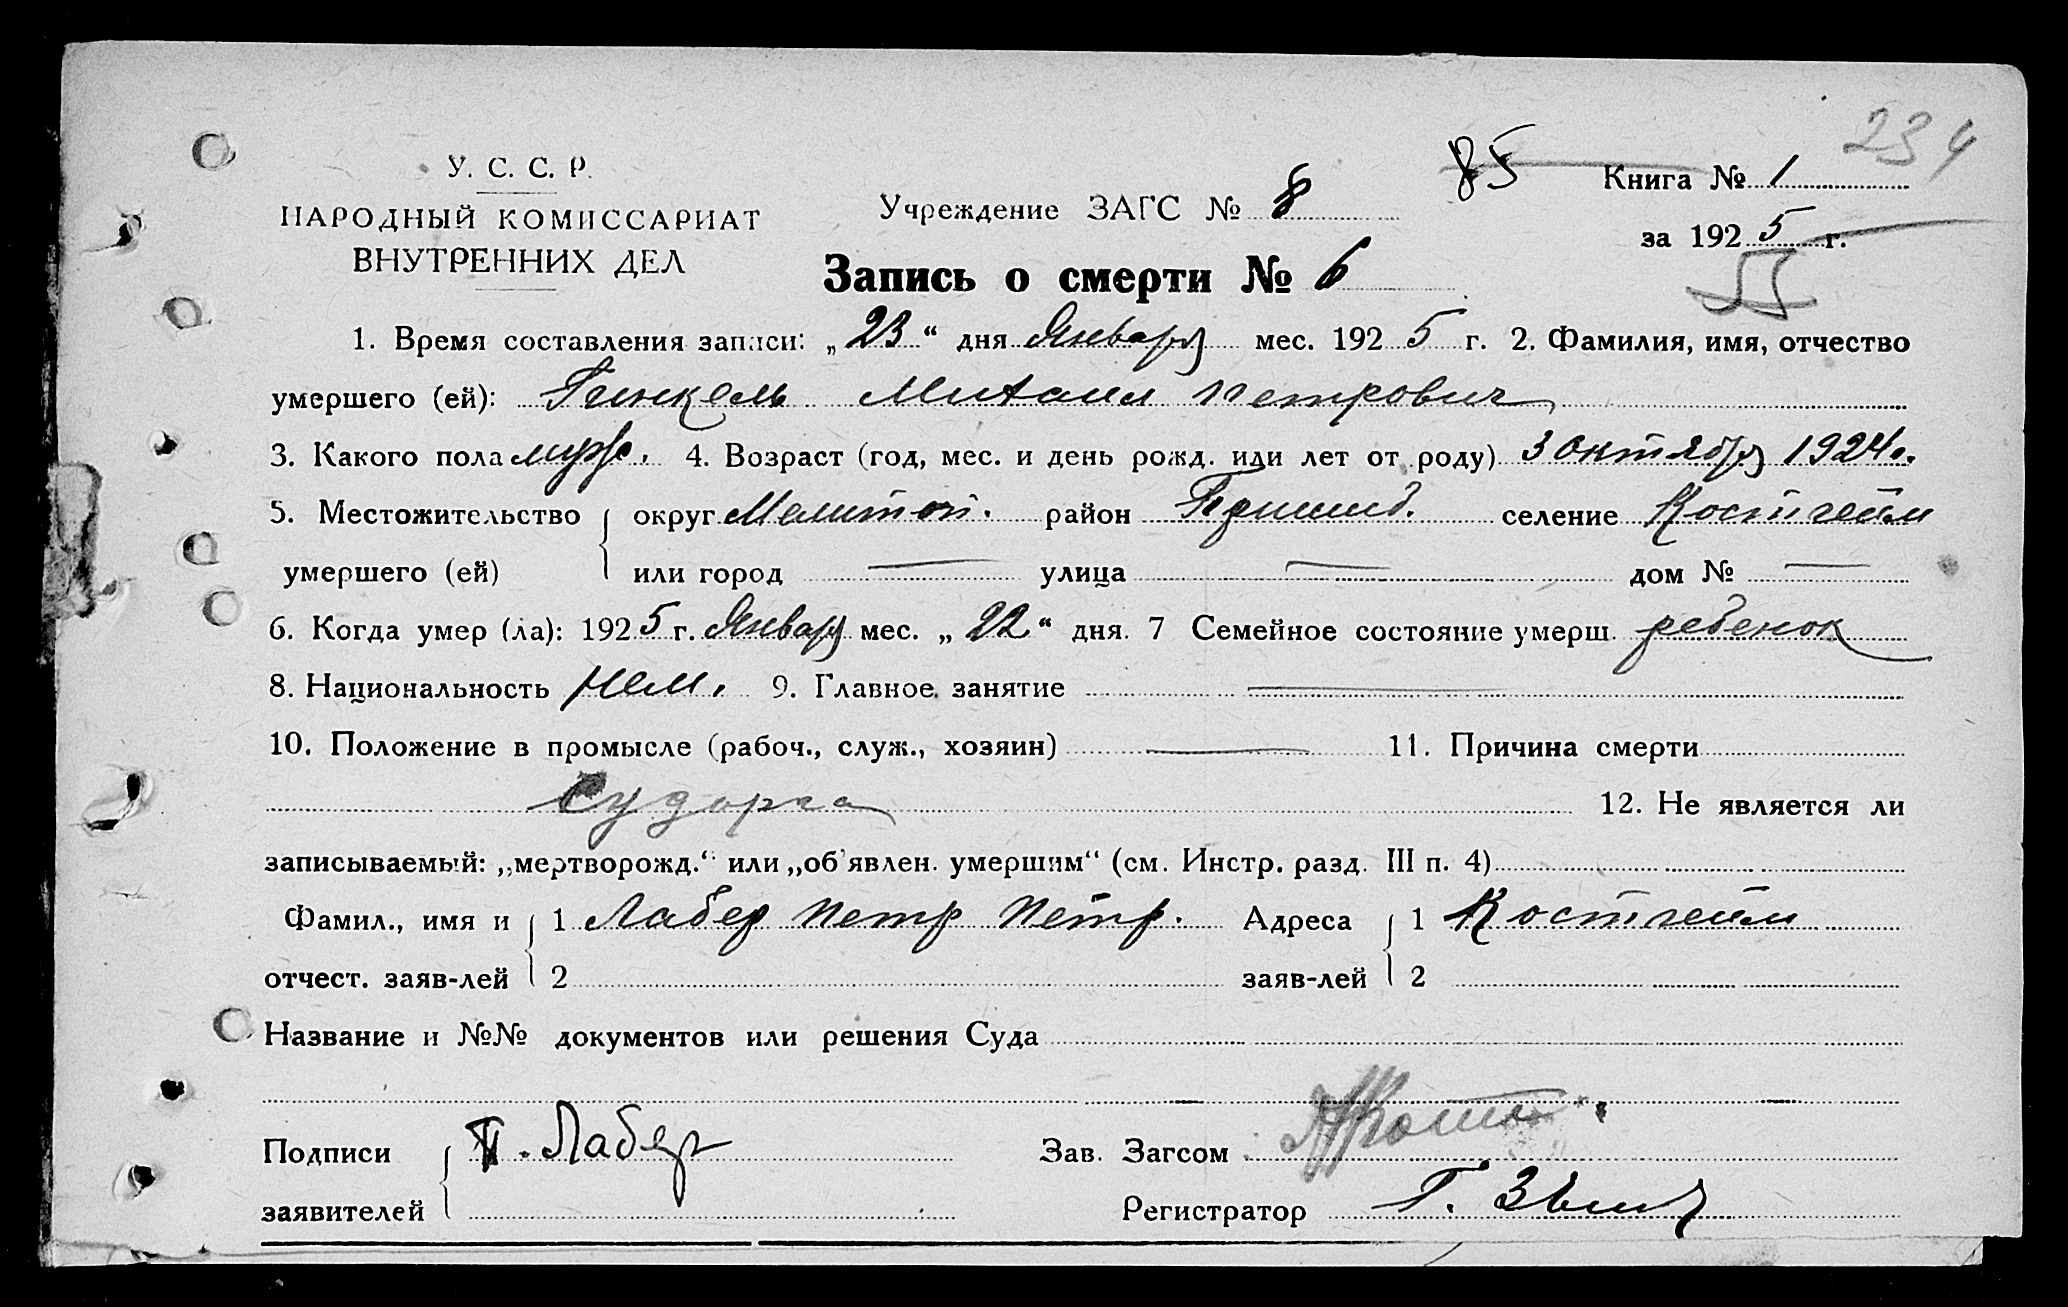 234
У. С. С. Р.
НАРОДНЫЙ КОМИССАРИАТ
ВНУТРЕННИХ ДЕЛ
Учреждение ЗАГС № 8
85
Книга № 1
за 1925 г.
II
Запись о смерти № 6
1. Время составления записи: „23“ дня Января мес. 1925 г. 2. Фамилия, имя, отчество
умершего (ей): Гинкель Михаил Петрович
3. Какого пола муж. 4. Возраст (год, мес. и день рожд. или лет от роду) 3 октября 1924 г.
5. Местожительство округ Мелитоп. район Пришиб. селение Костгейм
умершего (ей) или город — улица — дом № —
6. Когда умер (ла): 1925 г. Января мес. „22“ дня. 7 Семейное состояние умерш. ребенок
8. Национальность нем. 9. Главное занятие —
10. Положение в промысле (рабоч., служ., хозяин) — 11. Причина смерти
Судорга 12. Не является ли
записываемый: „мертворожд.“ или „об'явлен. умершим“ (см. Инстр. разд. III п. 4)
Фамил., имя и 1 Лабер Петр Петр. Адреса 1 Костгейм
отчест. заяв-лей 2 заяв-лей 2
Название и №№ документов или решения Суда
Подписи П. Лабер Зав. Загсом
заявителей Регистратор Г.